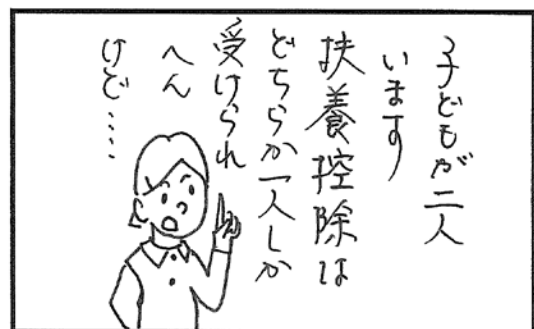 子どもが二人
います
扶養控除は
どちらか一人しか
受けられ
へん
けど……